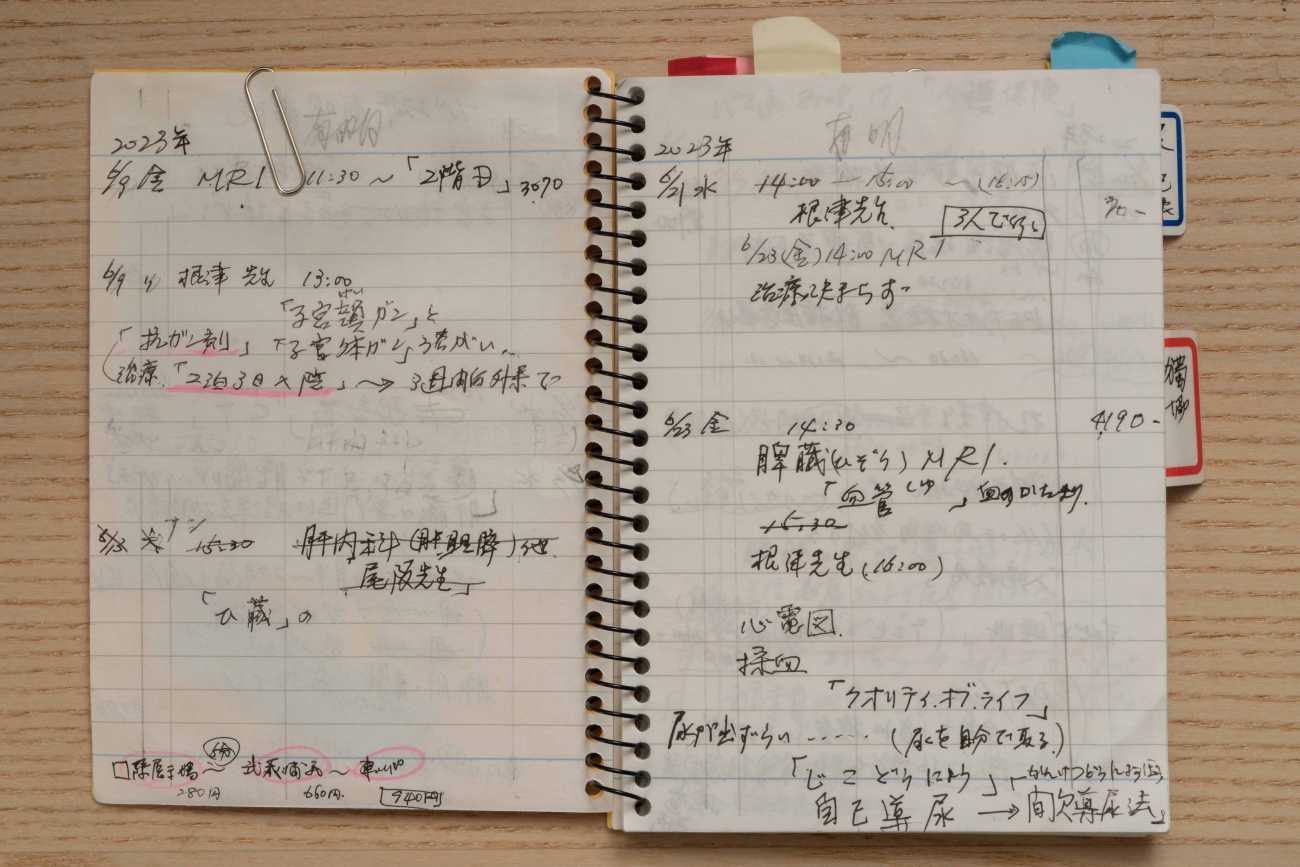 有明
2023年
6/9 金 MRI 11:30 ~ 「2階田」 3070
6/9 〃 根津先生 13:00
けい
「子宮頸ガン」と
「抗ガン剤」「子宮体ガン」うたがい...
治療.「2泊3日入院」~→ 3週間后外来で
6/13 火 ナシ 15:30 肝内科(肝胆膵)
尾阪先生
「ひ臓」の
5分
~ 武蔵浦和 ~
280円 660円. 940円
有明
2023年
6/21 水 14:00 — 15:00 ~ (16:15)
根津先生. 3人で行く
6/23(金)14:00 MRI
治療決まらず
6/23 金 14:30 4,190-
脾臓(ひぞう) MRI.
「血管しゅ」血のかたまり
15:30
根津先生(16:00)
心電図.
採血
「クオリティ.オブ.ライフ」
尿が出ずらい ..... (尿を自分で取る.)
「じこどうにょう」「かんけつどうにょう法」
自己導尿 → 間欠導尿法」